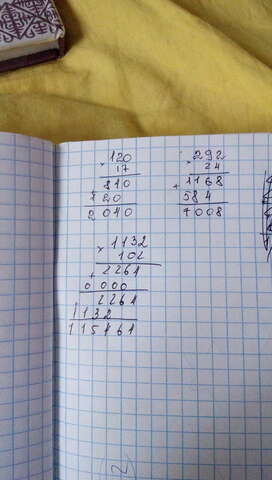 × 120
17
840
120
2040
× 292
24
+ 1168
584
7008
× 1132
102
+ 2264
0000
2264
1132
115464